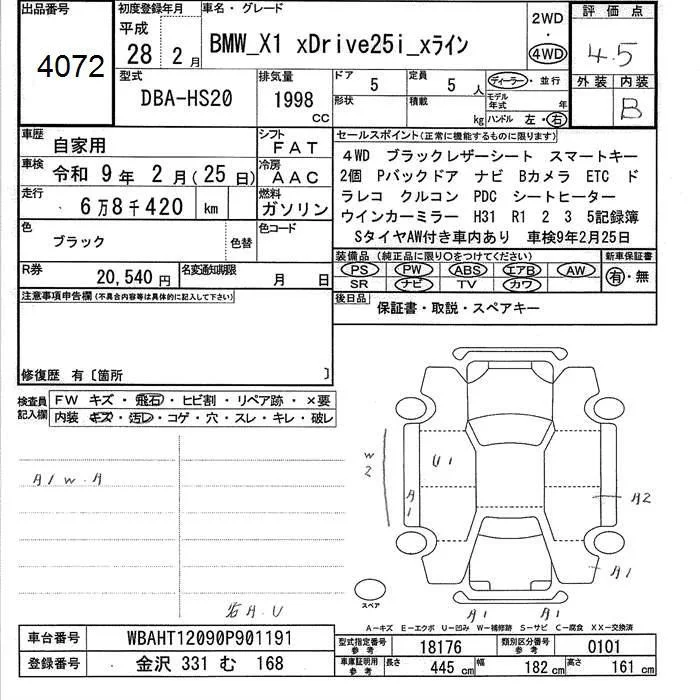 出品番号
4072
初度登録年月
平成
28 2 月
車名・グレード
BMW_X1 xDrive25i_xライン
2WD
・
4WD
評価点
4.5
外装 内装
B
型式
DBA-HS20
排気量
1998
CC
ドア
5
定員
5 人
ディーラー・並行
形状
積載
kg
モデル年式
年
ハンドル 左・右
車歴
自家用
シフト
FAT
車検
令和 9 年 2 月(25日)
冷房
AAC
走行
6万8千420 km
燃料
ガソリン
色
ブラック
色替
色コード
R券
20,540 円
名変通知期限
月 日
セールスポイント(正常に機能するものに限ります)
4WD ブラックレザーシート スマートキー
2個 Pバックドア ナビ Bカメラ ETC ド
ラレコ クルコン PDC シートヒーター
ウインカーミラー H31 R1 2 3 5記録簿
SタイヤAW付き車内あり 車検9年2月25日
装備品(純正品に限り○をつけてください)
新車保証書
PS PW ABS エアB AW
SR ナビ TV カワ
有・無
後日品
保証書・取説・スペアキー
注意事項申告欄(不具合内容等は具体的に記入して下さい)
修復歴 有〔箇所 〕
検査員記入欄
FW キズ・飛石・ヒビ割・リペア跡・×要
内装 キズ・汚レ・コゲ・穴・スレ・キレ・破レ
A1 W.A
W2
U1
A1
A2
A1
A1
A1
A.U
スペア
A−キズ E−エクボ U−凹み W−補修跡 S−サビ C−腐食 XX−交換済
車台番号
WBAHT12090P901191
登録番号
金沢 331 む 168
型式指定番号
参考
18176
類別区分番号
参考
0101
車庫証明用
参考
長さ 445 cm
幅 182 cm
高さ 161 cm